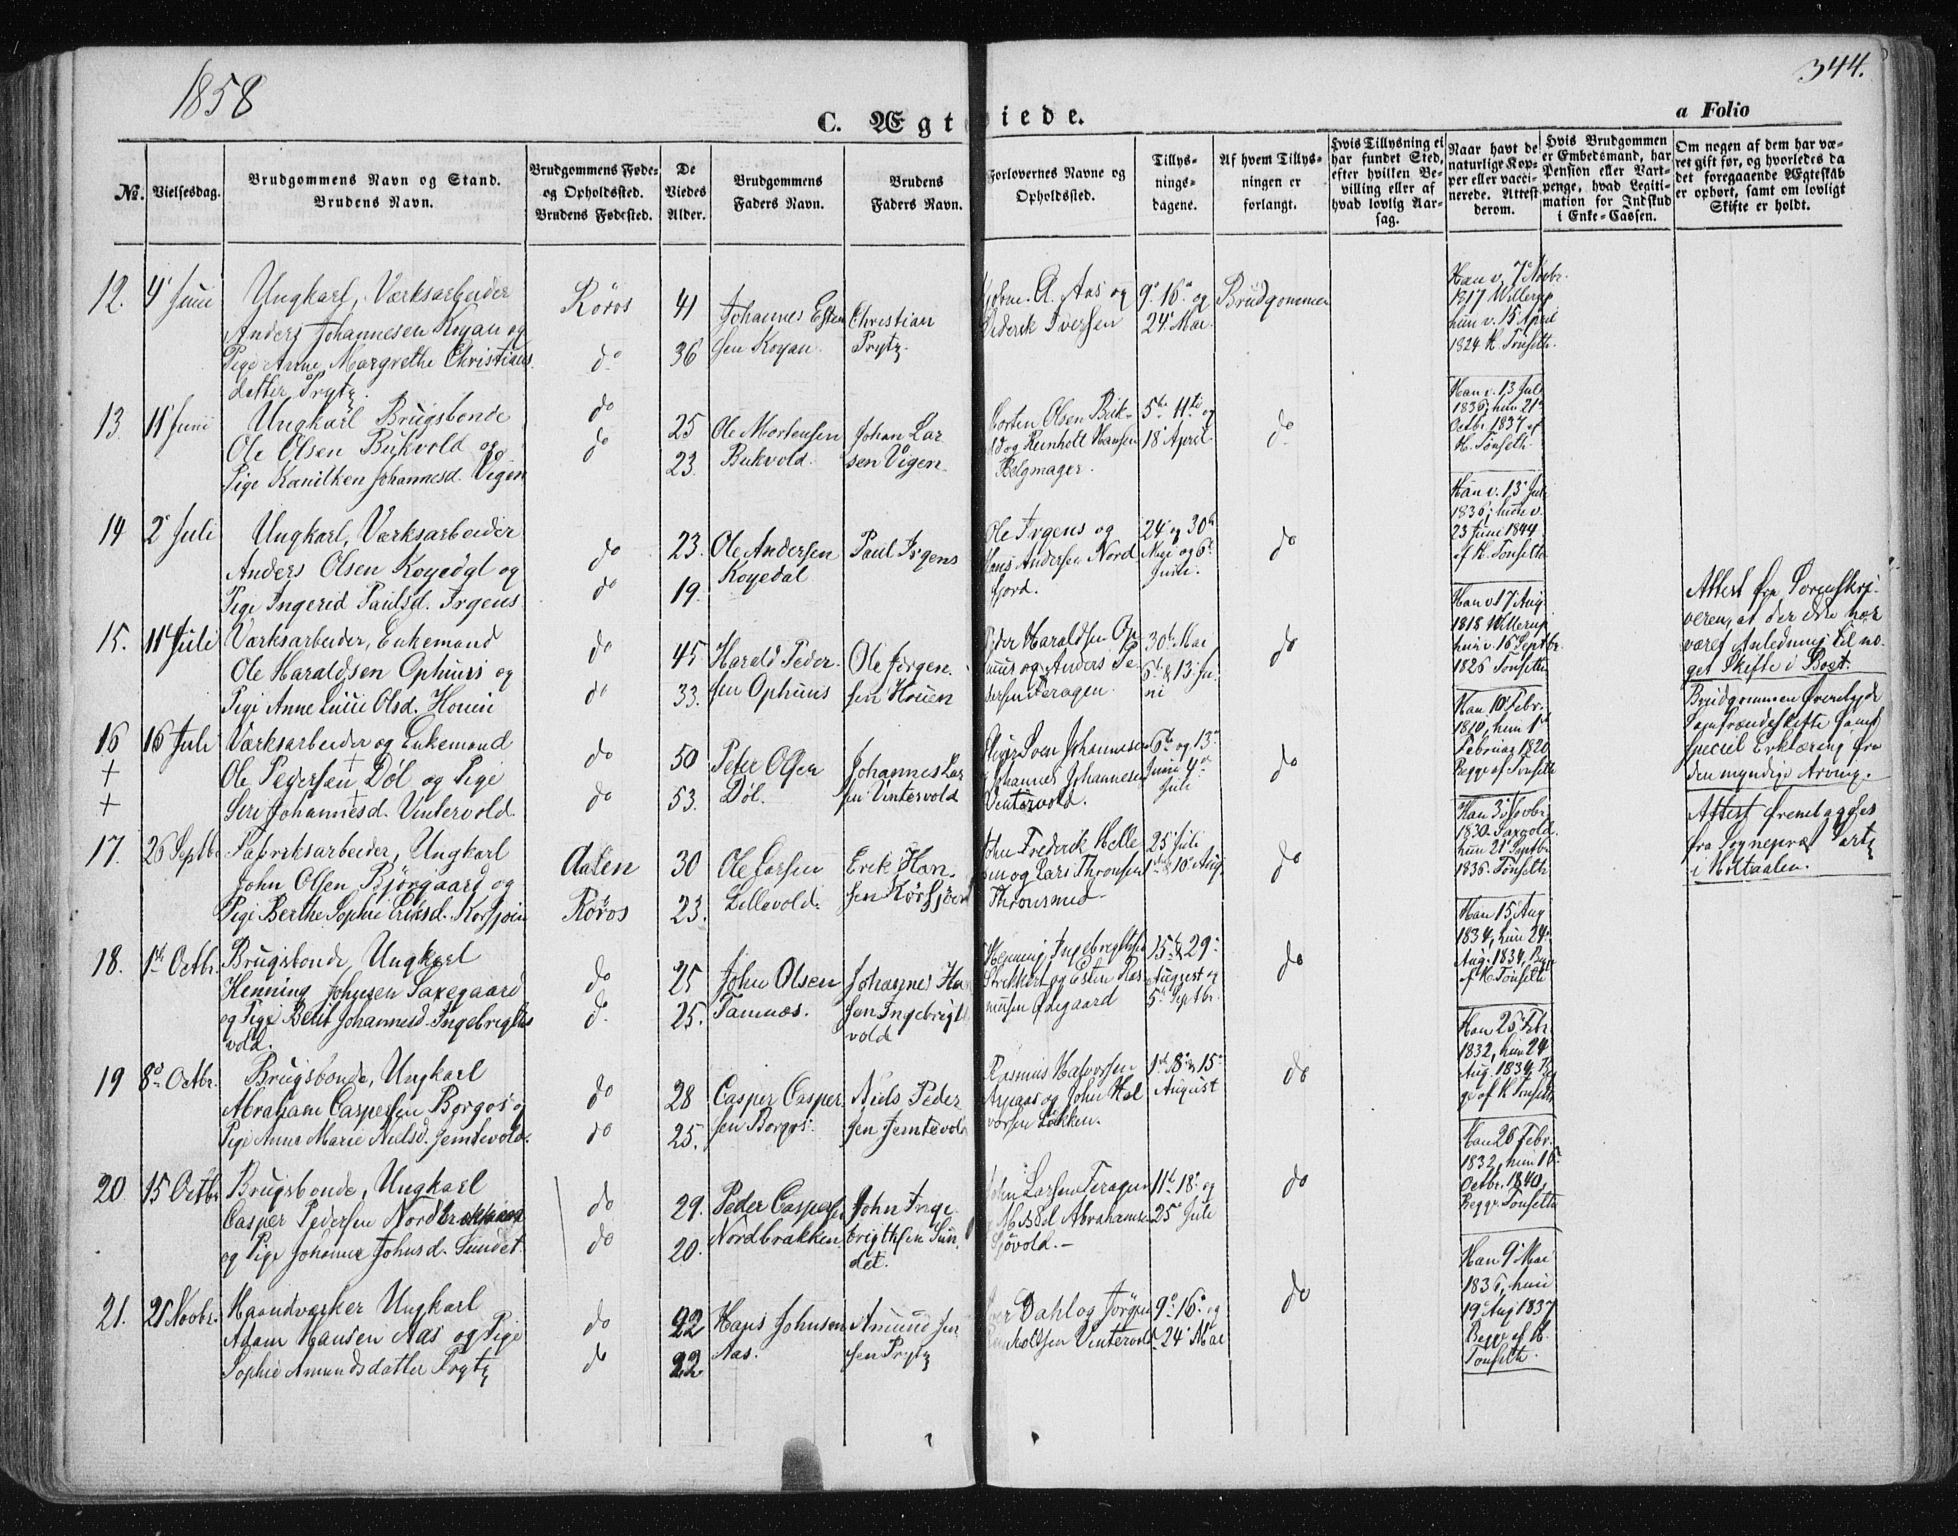 1858
344.
C. Ægteviede.
a Folio
No.
Vielsesdag.
Brudgommens Navn og Stand.
Brudens Navn.
Brudgommens Føde-
og Opholdssted.
Brudens Fødested.
De
Viedes
Alder.
Brudgommens
Faders Navn.
Brudens
Faders Navn.
Forlovernes Navne og
Opholdssted.
Tillys-
nings-
dagene.
Af hvem Tillys-
ningen er
forlangt.
Hvis Tillysning ei
har fundet Sted,
efter hvilken Be-
villing eller af
hvad lovlig Aar-
sag.
Naar havt de
naturlige Kop-
per eller vacci-
nerede. Attest
derom.
Hvis Brudgommen
er Embedsmand, har
Pension eller Vart-
penge, hvad Legiti-
mation for Indskud
i Enke-Cassen.
Om nogen af dem har væ-
ret gift før, og hvorledes da
det foregaaende Ægteskab
er ophørt, samt om lovligt
Skifte er holdt.
12. 4 Juni
Ungkarl, Værksarbeider
Anders Johannesen Koyan og
Pige Anne Margrethe Christians
datter Prytz.
Röros
do
41
36
Johannes Esten
sen Koyan.
Christian
Prytz
A. Aas og
Diderik Iversen
9de 16de og
24 Mai
Brudgommen
Han v. 7 Novbr.
1817 Willerup
hun v. 15 April
1824 K. Tonseth.
13. 11 Juni
Ungkarl Brugsbonde
Ole Olsen Bukvold og
Pige Kanilken Johannesd. Vigen
do
do
25
23.
Ole Mortensen
Bukvold.
Johan Lar
sen Vigen.
Morten Olsen Buk-
og Reinholt Hansen
Belgmager.
5te 11te og
18 April
do
Han v. 13 Juli
1836, hun 21
Octbr 1837 af
K. Tonseth.
14 2 Juli
Ungkarl, Værksarbeider
Anders Olsen Koyedal og
Pige Ingerid Paulsd. Irgens
do
do
23.
19.
Ole Andersen
Koyedal
Paul Irgens
Ole Irgens og
Hans Andersen Nord
fjord.
24 og 30te
Mai og 6te
Juni.
do
Han v. 13 Juli
1836, hun v.
23 Juni 1844
af K. Tonseth
15. 11 Juli
Værksarbeider, Enkemand
Ole Haraldsen Ophuus og
Pige Anne Lucie Olsd. Houen
do
do
45
33.
Harald Peder-
sen Ophuus
Ole Jörgen
sen Houen
Peder Haraldsen Op
huus og Anders Pe
dersen Feragen.
30te Mai
6te & 13 Ju
ni
do
Han v 17 Aug
1818 Willerup
hun v. 16 Septbr.
1826 Tonseth
Attest fra Sorenskri-
veren, at der ikke har
været Anledning til no-
get Skifte i Boet.
16 16 Juli
+
+
Værksarbeider og Enkemand
Ole Pedersen Döl og Pige
Siri Johannesd. Vintervold
do
do
50
53.
Peter Olsen
Döl.
Johannes Lar
sen Vintervold
Sven Johannesen
Johannes Johannesen
Vintervold.
6te og 13de
Juni 4de
Juli
do
Han 10 Febr.
1810, hun 1
Februar 1820
Begge af Tonseth
Brudgommen fremlagde
Samfrændeskifte samt
speciel Erklæring fra
den myndige Arving.
17. 26 Septbr.
Fabriksarbeider, Ungkarl
John Olsen Bjørgaard og
Pige Berthe Sophie Eriksd. Korssjøen
Aalen
Röros
30
23.
Ole Larsen
Lillevold.
Erik Han
sen Korssjøen
John Frederik Helle
sen og Lars Thronsen
Thronsmed.
25 Juli
1ste & 10 Aug.
do
Han 3 Novbr
1830. Saxgold.
hun 21 Septbr
1836. Tonseth
Attest fremlagdes
fra Sognepræst Sartz
i Holtaalen.
18. 1ste Octbr.
Brugsbonde, Ungkarl
Henning Johnsen Saxegaard
og Pige Berit Johannesd. Ingebrigts
vold.
do
do
25
25.
John Olsen
Tamnes.
Johannes Han
sen Ingebrigts
vold
Henning Ingebrigtsen
og Esten Ras
musen Ødegaard
15de & 29de
August og
5te Septbr.
do
Han 15 Aug
1834, hun 24
Aug. 1834, Begge
af K. Tonseth
19 8de Octbr.
Brugsbonde, Ungkarl
Abraham Caspersen Borgos og
Pige Anne Marie Nielsd. Jemtevold.
do
do
28
25.
Casper Casper
sen Borgos.
Niels Peder
sen Jemtevold
Rasmus Halvorsen
Aspaas og John Hal
vorsen Løkken.
1ste 8de & 15de
August
do
Han 25 Febr
1832, hun 24
Aug. 1834, Beg
ge af K Tonseth
20 15 Octbr
Brugsbonde, Ungkarl
Casper Pedersen Nordbrækken
og Pige Johanne Johnsd. Sundet.
do
do
29.
20.
Peder Caspersen
Nordbrækken
John Inge
brigtsen Sun
det.
John Larsen Feragen
Abraham
Sjøvold.
11te 18de og
25 Juli
do
Han 26 Febr.
1832, hun 16
Octbr. 1840,
Begge Tonseth
21. 21 Novbr.
Haandværker Ungkarl
Adam Hansen Aas og Pige
Sophie Amundsdatter Prytz
do
do
22
22
Hans Johnsen
Aas.
Amund Jen
sen Prytz
Dahl og Jörgen
Reinholdsen Vintervold
9de 16de og
24 Mai
do
Han 9 Mai
1836, hun
19 Aug 1837
Begge af K.
Tonseth.